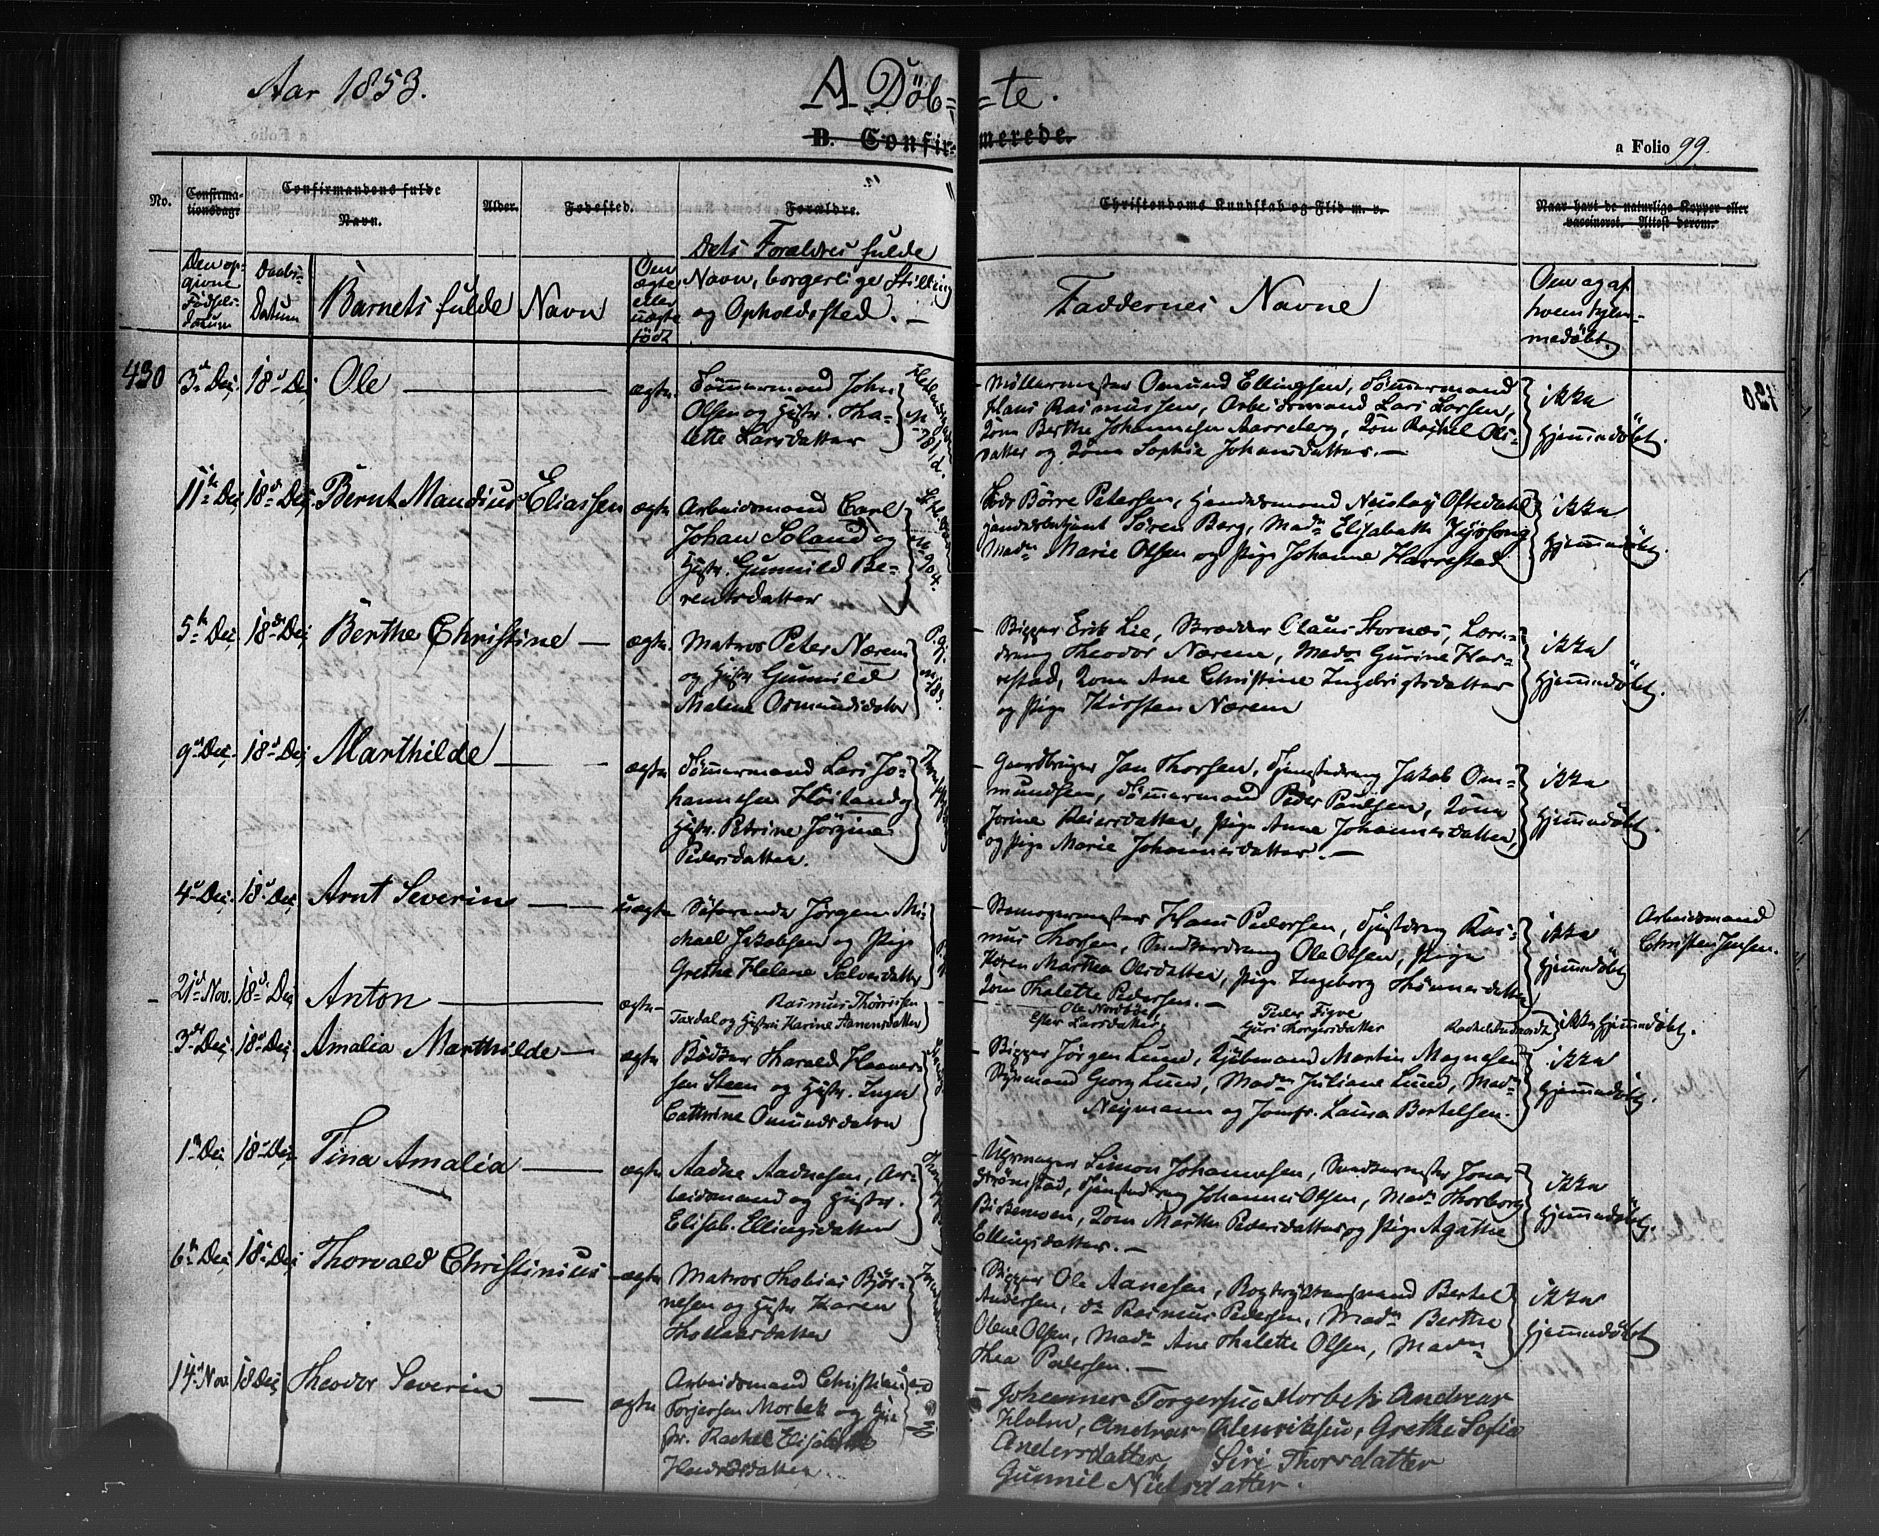 Aar 1853.
A Döb=
=te.
B. Confir=
merede.
a Folio 99.
No.
Confirma-
tionsdag.
Confirmandens fulde
Navn.
Alder.
Fødested.
Forældre.
Christendoms Kundskab og Flid m. v.
Naar havt de naturlige Kopper eller
vaccineret. Attest derom.
Den op-
givne
Födsels-
datum
Daabs-
Datum
Barnets fulde Navn
Om
ægte
eller
uægte
födt
Dets Forældres fulde
Navn, borgerlige Stilling
og Opholdssted. —
Faddernes Navne
Om og af
hvem hjem-
medöbt.
430
3d Dec. 18d Dec. Ole
ægte.
Tömmermand John
Olsen og Hstr. Tha-
lette Larsdatter
Møllermester Osmund Ellingsen, Tömmermand
Hans Rasmussen, Arbeidsmand Lars Larsen,
Kone Berthe Johannesen Aarreberg, Kon Rachel Ols-
datter og Kone Sophie Johansdatter. —
ikke
hjemmedöbt.
11te Dec. 18de Dec. Bernt Mandius Eliassen
ægte
Arbeidsmand Carl
Johan Soland og
Hstr. Gunnild Be-
rentsdatter
Børre Petersen, Handelsmand Oftedahl
Søren Berg, Madm Elisabeth
Madm Marie Olsen og Pige Johanne Harrestad
ikke
hjemmedöbt.
5te Dec. 18de Dec. Berthe Christine —
ægte.
Matros Peter Nærem
og Hstr. Gunnild
Malene Osmundsdatter
Bigger Erik Lie, Bradder Claus Stornæs, Lære-
dreng Theodor Nærem, Madm Gurine Har-
restad, Kone Ane Christine Ingebrigtsdatter
og Pige Kirsten Nærem
ikke
hjemmedöbt.
9d Dec. 18d Dec. Marthilde
ægte
Tömmermand Lars Jo-
hannesen Høiland og
Hstr. Petrine Jørgine
Pedersdatter.
Gaardbruger Jan Thorsen, Tjenestedreng Jakob Os-
mundsen, Tömmermand Peder Paulsen, Kone
Jorine Reiersdatter, Pige Anne Johannesdatter,
og Pige Marie Johannesdatter. —
ikke
hjemmedöbt.
4d Dec. 18d Dec. Arnt Severin
uægte
Söfarende Jørgen Mi-
chael Jakobsen og Pige
Grethe Helene Salvesdatter
Hans Pedersen, Ras-
mus Thorsen, Snedkerdreng Ole Olsen, Pige
Karen Marthea Olsdatter, Pige Ingeborg Thönnesdatter
Kone Thalette Pedersen. —
ikke
hjemmedöbt
Arbeidsmand
Christen Jensen.
21d Nov. 18d Dec. Anton
ægte
Rasmus Thörrissen
Taxdal og Hstr. Karine Aanensdatter
Ole Nordbøe,
Ester Larsdatter,
Peder Figve
Guri Torgersdatter
ikke hjemmedöbt.
3d Dec. 18d Dec. Amalia Marthilde —
ægte
Bödker Harald Haaver-
sen Steen og Hstr. Inger
Cathrine Omundsdatter
Bigger Jørgen Lund, Martin Magnesen
Styrmand Georg Lund, Madm Juliane Lund, Madm
Neijmann og Jomfr. Laura Bertelsen.
ikke
hjemmedöbt.
1te Dec. 18d Dec. Tina Amalia
ægte
Aadne Aadnesen, Ar-
beidsmand og Hustr.
Elisab. Ellingsdatter
Uhrmager Simon Johannesen, Snedkermester Jonas
Strömstad, Tjenestedreng Johannes Olsen, Madm Thorborg
Birkemoen, Kone Marthe Pedersdatter og Pige Agathe
Ellingsdatter. —
ikke
hjemmedöbt.
6te Dec. 18d Dec. Thorvald Christinius
ægte
Matros Thobias Bjør-
nesen og Hstr Karen
Thollaksdatter
Bigger Ole Aanesen, Bertel
Andersen, do Rasmus Pedersen, Madm Berthe
Olene Olsen, Madm Ane Thalette Olsen, Madm
Thea Pedersen. —
ikke
hjemmedöbt
14d Nov. 18 Dec. Theodor Severin
ægte
Arbeidsmand Christian
Torjersen Morbek og Hu-
str. Rachel Elisabeth
Johannes Torgersen Morbek Andreas
Holm, Andreas Henriksen, Grethe Sofie
Andersdatter, Siri Thorsdatter
Gunnil Nielsdatter.